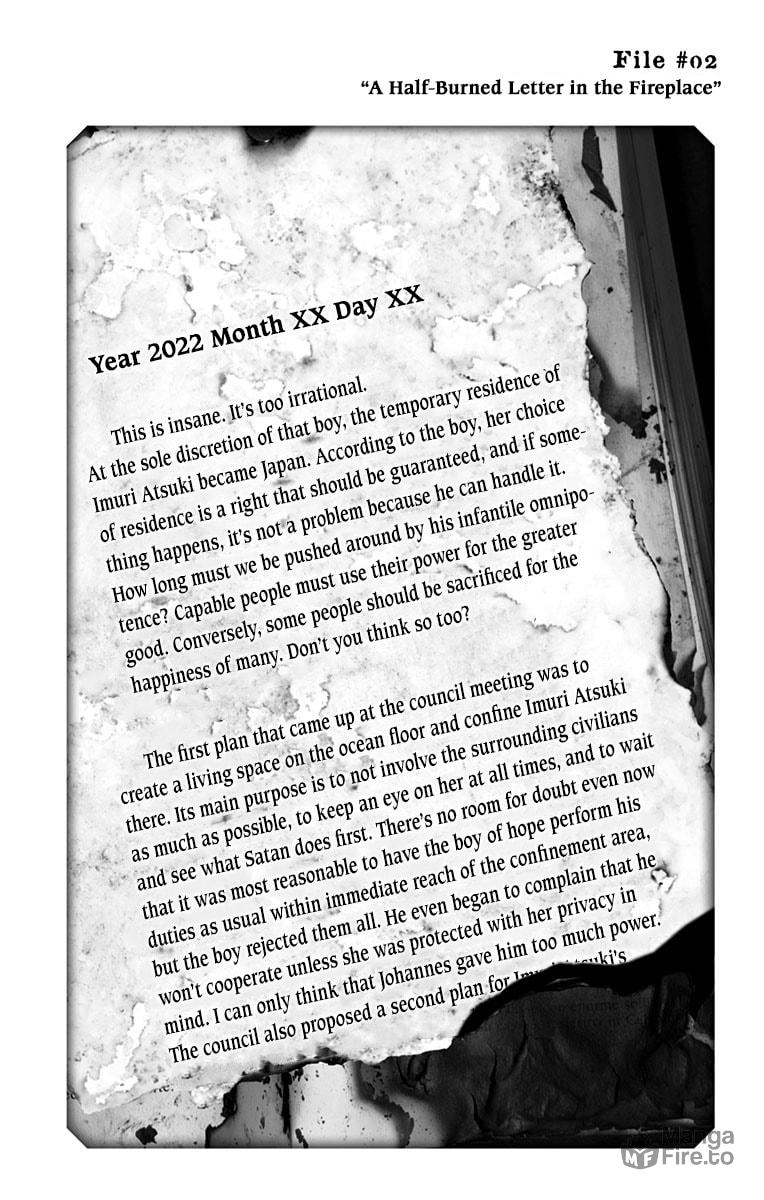 File #02
“A Half-Burned Letter in the Fireplace”
Year 2022 Month XX Day XX
This is insane. It’s too irrational.
At the sole discretion of that boy, the temporary residence of
Imuri Atsuki became Japan. According to the boy, her choice
of residence is a right that should be guaranteed, and if some-
thing happens, it’s not a problem because he can handle it.
How long must we be pushed around by his infantile omnipo-
tence? Capable people must use their power for the greater
good. Conversely, some people should be sacrificed for the
happiness of many. Don’t you think so too?
The first plan that came up at the council meeting was to
create a living space on the ocean floor and confine Imuri Atsuki
there. Its main purpose is to not involve the surrounding civilians
as much as possible, to keep an eye on her at all times, and to wait
and see what Satan does first. There’s no room for doubt even now
that it was most reasonable to have the boy of hope perform his
duties as usual within immediate reach of the confinement area,
but the boy rejected them all. He even began to complain that he
won’t cooperate unless she was protected with her privacy in
mind. I can only think that Johannes gave him too much power.
The council also proposed a second plan for
Manga
MF Fire.to